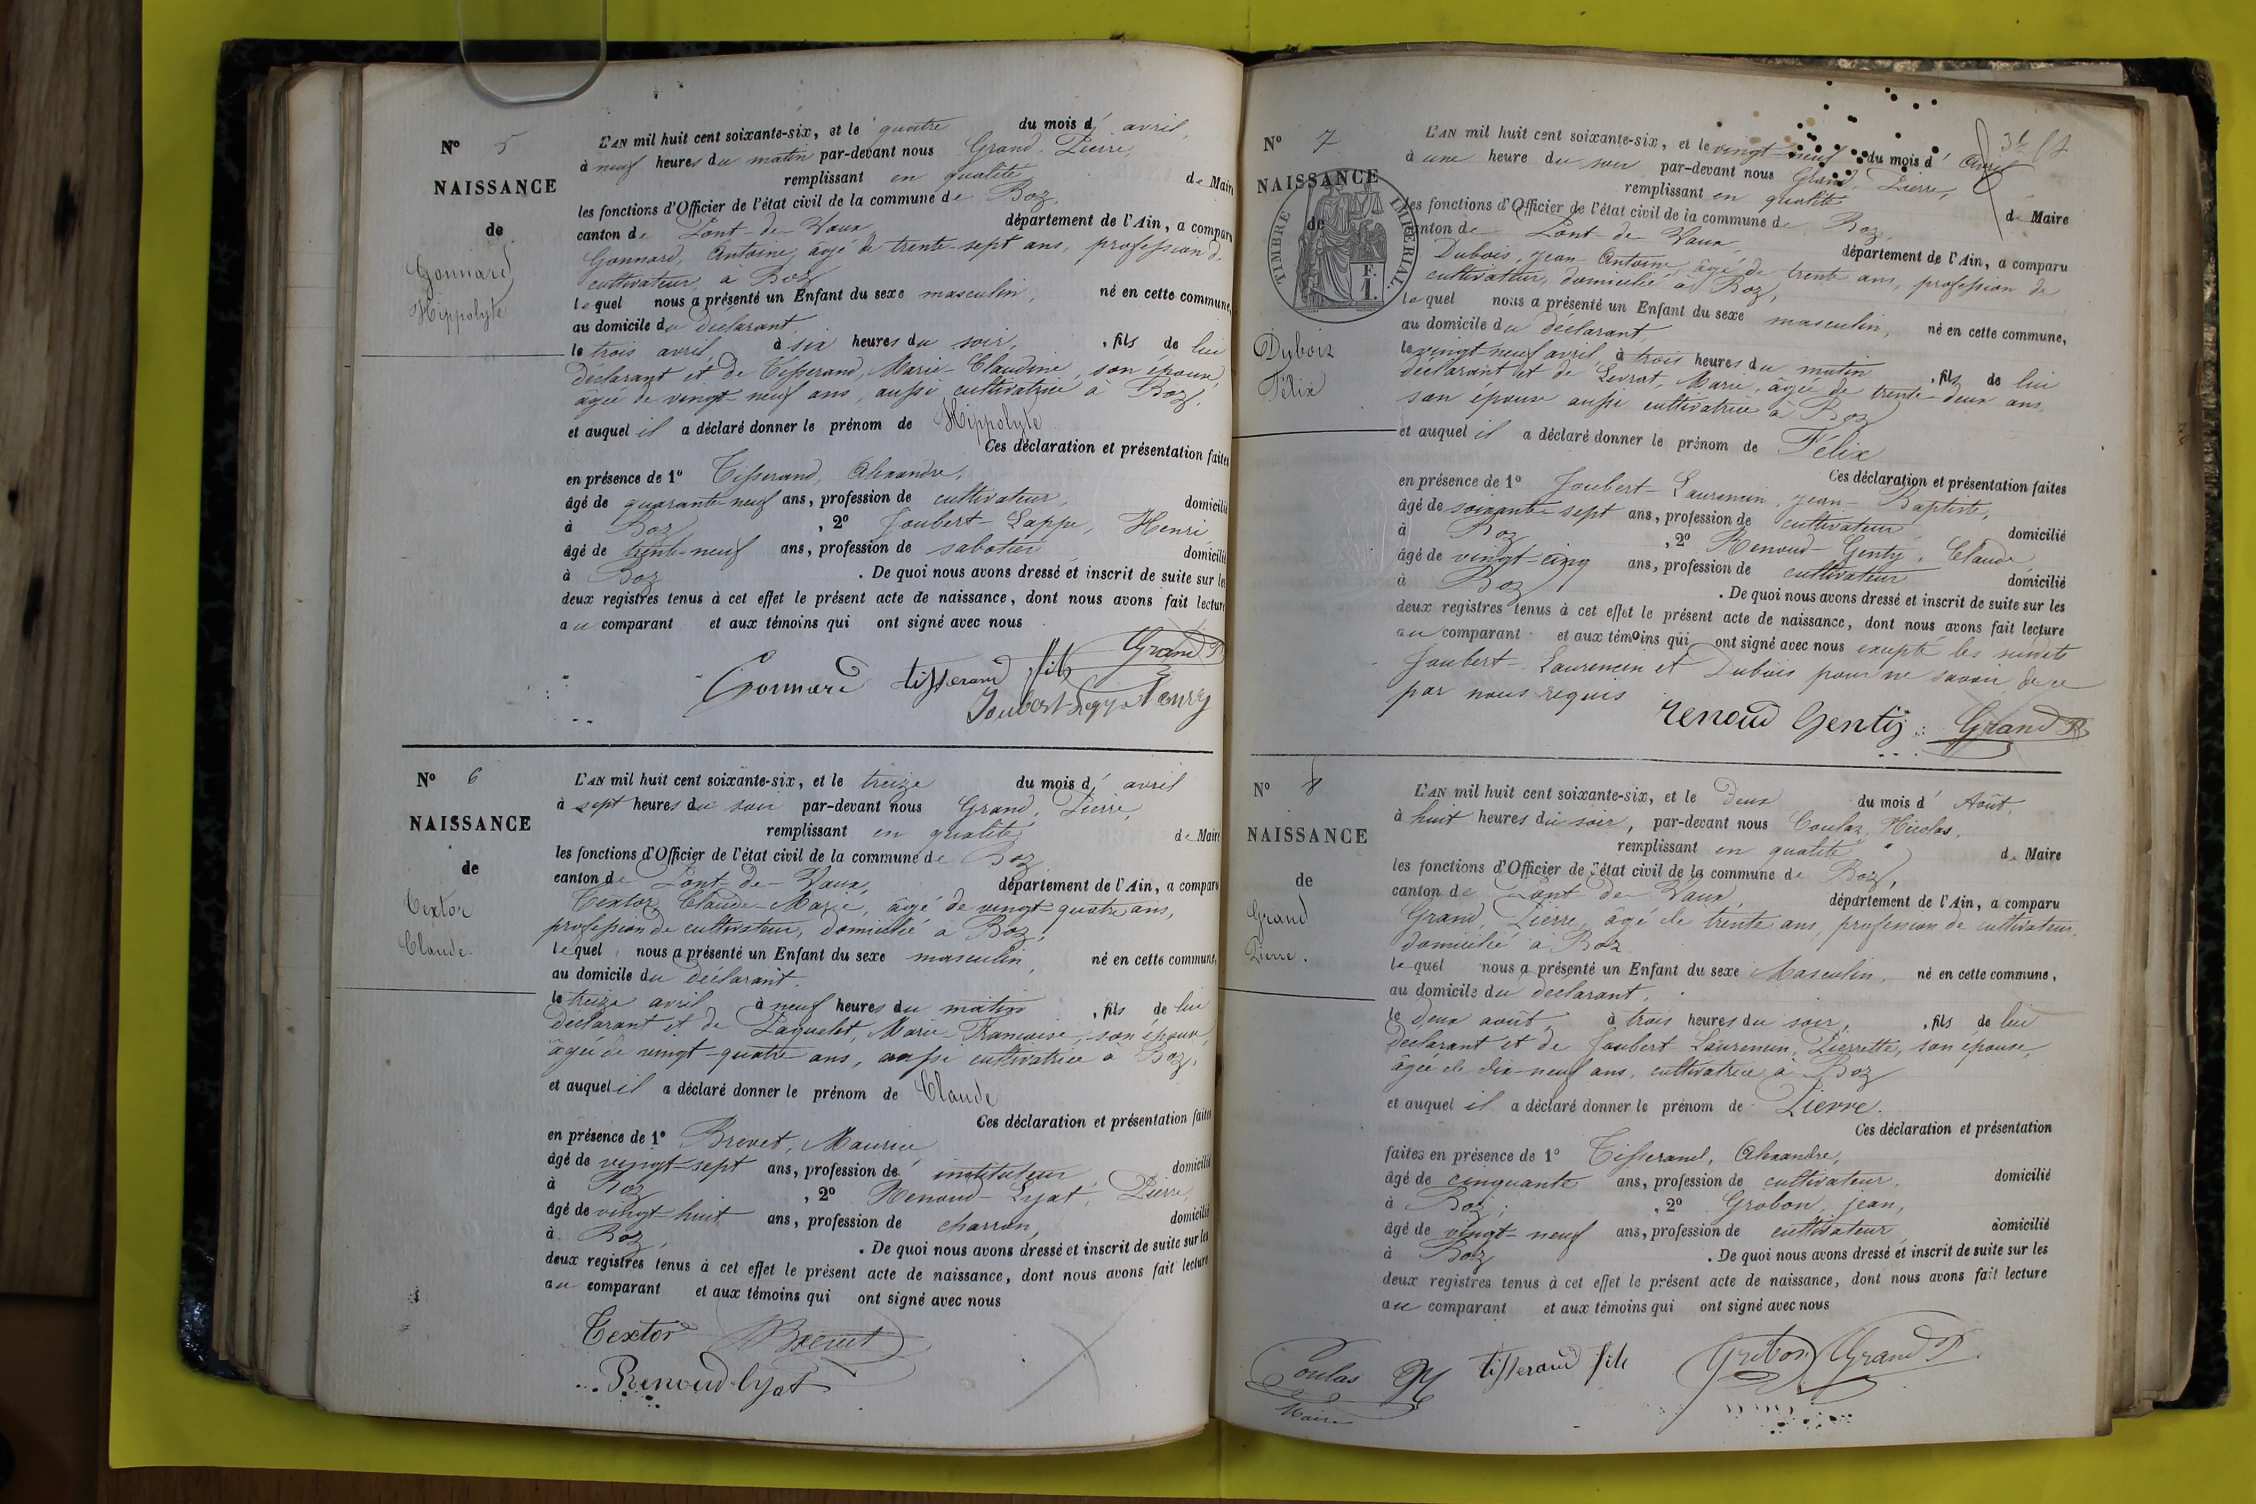 N° 5
NAISSANCE
de
Gonnard
Hippolyte
L'AN mil huit cent soixante-six, et le quatre du mois d' avril,
à neuf heures du matin par-devant nous Grand, Pierre,
remplissant en qualité de Maire
les fonctions d'Officier de l'état civil de la commune de Boz,
canton de Pont-de-Vaux, département de l'Ain, a comparu
Gonnard, Antoine, âgé de trente-sept ans, profession de
cultivateur, à Boz
lequel nous a présenté un Enfant du sexe masculin, né en cette commune,
au domicile du déclarant,
le trois avril, à six heures du soir, , fils de lui
déclarant et de Tisserand, Marie-Claudine, son épouse,
âgée de vingt-neuf ans, aussi cultivatrice à Boz,
et auquel il a déclaré donner le prénom de Hippolyte
Ces déclaration et présentation faites
en présence de 1° Tisserand, Alexandre,
âgé de quarante-neuf ans, profession de cultivateur, domicilié
à Boz , 2° Joubert-Lappe, Henri,
âgé de trente-neuf ans, profession de sabotier domicilié
à Boz . De quoi nous avons dressé et inscrit de suite sur les
deux registres tenus à cet effet le présent acte de naissance, dont nous avons fait lecture
au comparant et aux témoins qui ont signé avec nous
Grand P
Gonnard tisserand fils
Joubert Henry
N° 6
NAISSANCE
de
Textor
Claude.
L'AN mil huit cent soixante-six, et le treize du mois d' avril
à sept heures du soir par-devant nous Grand, Pierre,
remplissant en qualité de Maire
les fonctions d'Officier de l'état civil de la commune de Boz
canton de Pont-de-Vaux, département de l'Ain, a comparu
Textor, Claude-Marie, âgé de vingt-quatre ans,
profession de cultivateur, domicilié à Boz,
lequel nous a présenté un Enfant du sexe masculin, né en cette commune,
au domicile du déclarant,
le treize avril à neuf heures du matin , fils de lui
déclarant et de Paquelet, Marie-Françoise, son épouse,
âgée de vingt-quatre ans, aussi cultivatrice à Boz,
et auquel il a déclaré donner le prénom de Claude
Ces déclaration et présentation faites
en présence de 1° Brevet, Maurice
âgé de vingt-sept ans, profession de instituteur domicilié
à Boz , 2° Renoud-Lyat, Pierre,
âgé de vingt-huit ans, profession de charron, domicilié
à Boz, . De quoi nous avons dressé et inscrit de suite sur les
deux registres tenus à cet effet le présent acte de naissance, dont nous avons fait lecture
au comparant et aux témoins qui ont signé avec nous
Textor Brevet
Renoud-lyat
N° 7
NAISSANCE
de
TIMBRE IMPÉRIAL.
Dubois
Félix
L'AN mil huit cent soixante-six, et le vingt-neuf du mois d' avril
à une heure du soir par-devant nous Grand, Pierre,
remplissant en qualité de Maire
les fonctions d'Officier de l'état civil de la commune de Boz,
canton de Pont-de-Vaux, département de l'Ain, a comparu
Dubois, Jean-Antoine, âgé de trente ans, profession de
cultivateur, domicilié à Boz,
lequel nous a présenté un Enfant du sexe masculin, né en cette commune,
au domicile du déclarant,
le vingt-neuf avril, à trois heures du matin , fils de lui
déclarant et de Levrat, Marie, âgée de trente-deux ans,
son épouse aussi cultivatrice à Boz
et auquel il a déclaré donner le prénom de Félix
Ces déclaration et présentation faites
en présence de 1° Joubert-Laurencin, Jean-Baptiste,
âgé de soixante sept ans, profession de cultivateur domicilié
à Boz , 2° Renoud-Genty, Claude
âgé de vingt-cinq ans, profession de cultivateur domicilié
à Boz . De quoi nous avons dressé et inscrit de suite sur les
deux registres tenus à cet effet le présent acte de naissance, dont nous avons fait lecture
au comparant et aux témoins qui ont signé avec nous excepté les susdits
Joubert-Laurencin et Dubois pour ne savoir de ce
par nous requis
renoud Genty Grand P
N° 8
NAISSANCE
de
Grand
Pierre.
L'AN mil huit cent soixante-six, et le Deux du mois d' Août,
à huit heures du soir, par-devant nous Coulas, Nicolas,
remplissant en qualité de Maire
les fonctions d'Officier de l'état civil de la commune de Boz,
canton de Pont de Vaux, département de l'Ain, a comparu
Grand, Pierre, agé de trente ans, profession de cultivateur,
domicilié à Boz
lequel nous a présenté un Enfant du sexe Masculin, né en cette commune,
au domicile du déclarant,
le Deux août, à trois heures du soir, , fils de lui
Declarant et de Joubert-Laurencin, Pierrette, son épouse,
âgée de dix-neuf ans, cultivatrice à Boz
et auquel il a déclaré donner le prénom de Pierre.
Ces déclaration et présentation
faites en présence de 1° Tisserand, Alexandre,
âgé de cinquante ans, profession de cultivateur, domicilié
à Boz; , 2° Grobon, jean,
âgé de vingt-neuf ans, profession de cultivateur domicilié
à Boz . De quoi nous avons dressé et inscrit de suite sur les
deux registres tenus à cet effet le présent acte de naissance, dont nous avons fait lecture
au comparant et aux témoins qui ont signé avec nous
Coulas N tisserand fils Grobon Grand P
Maire